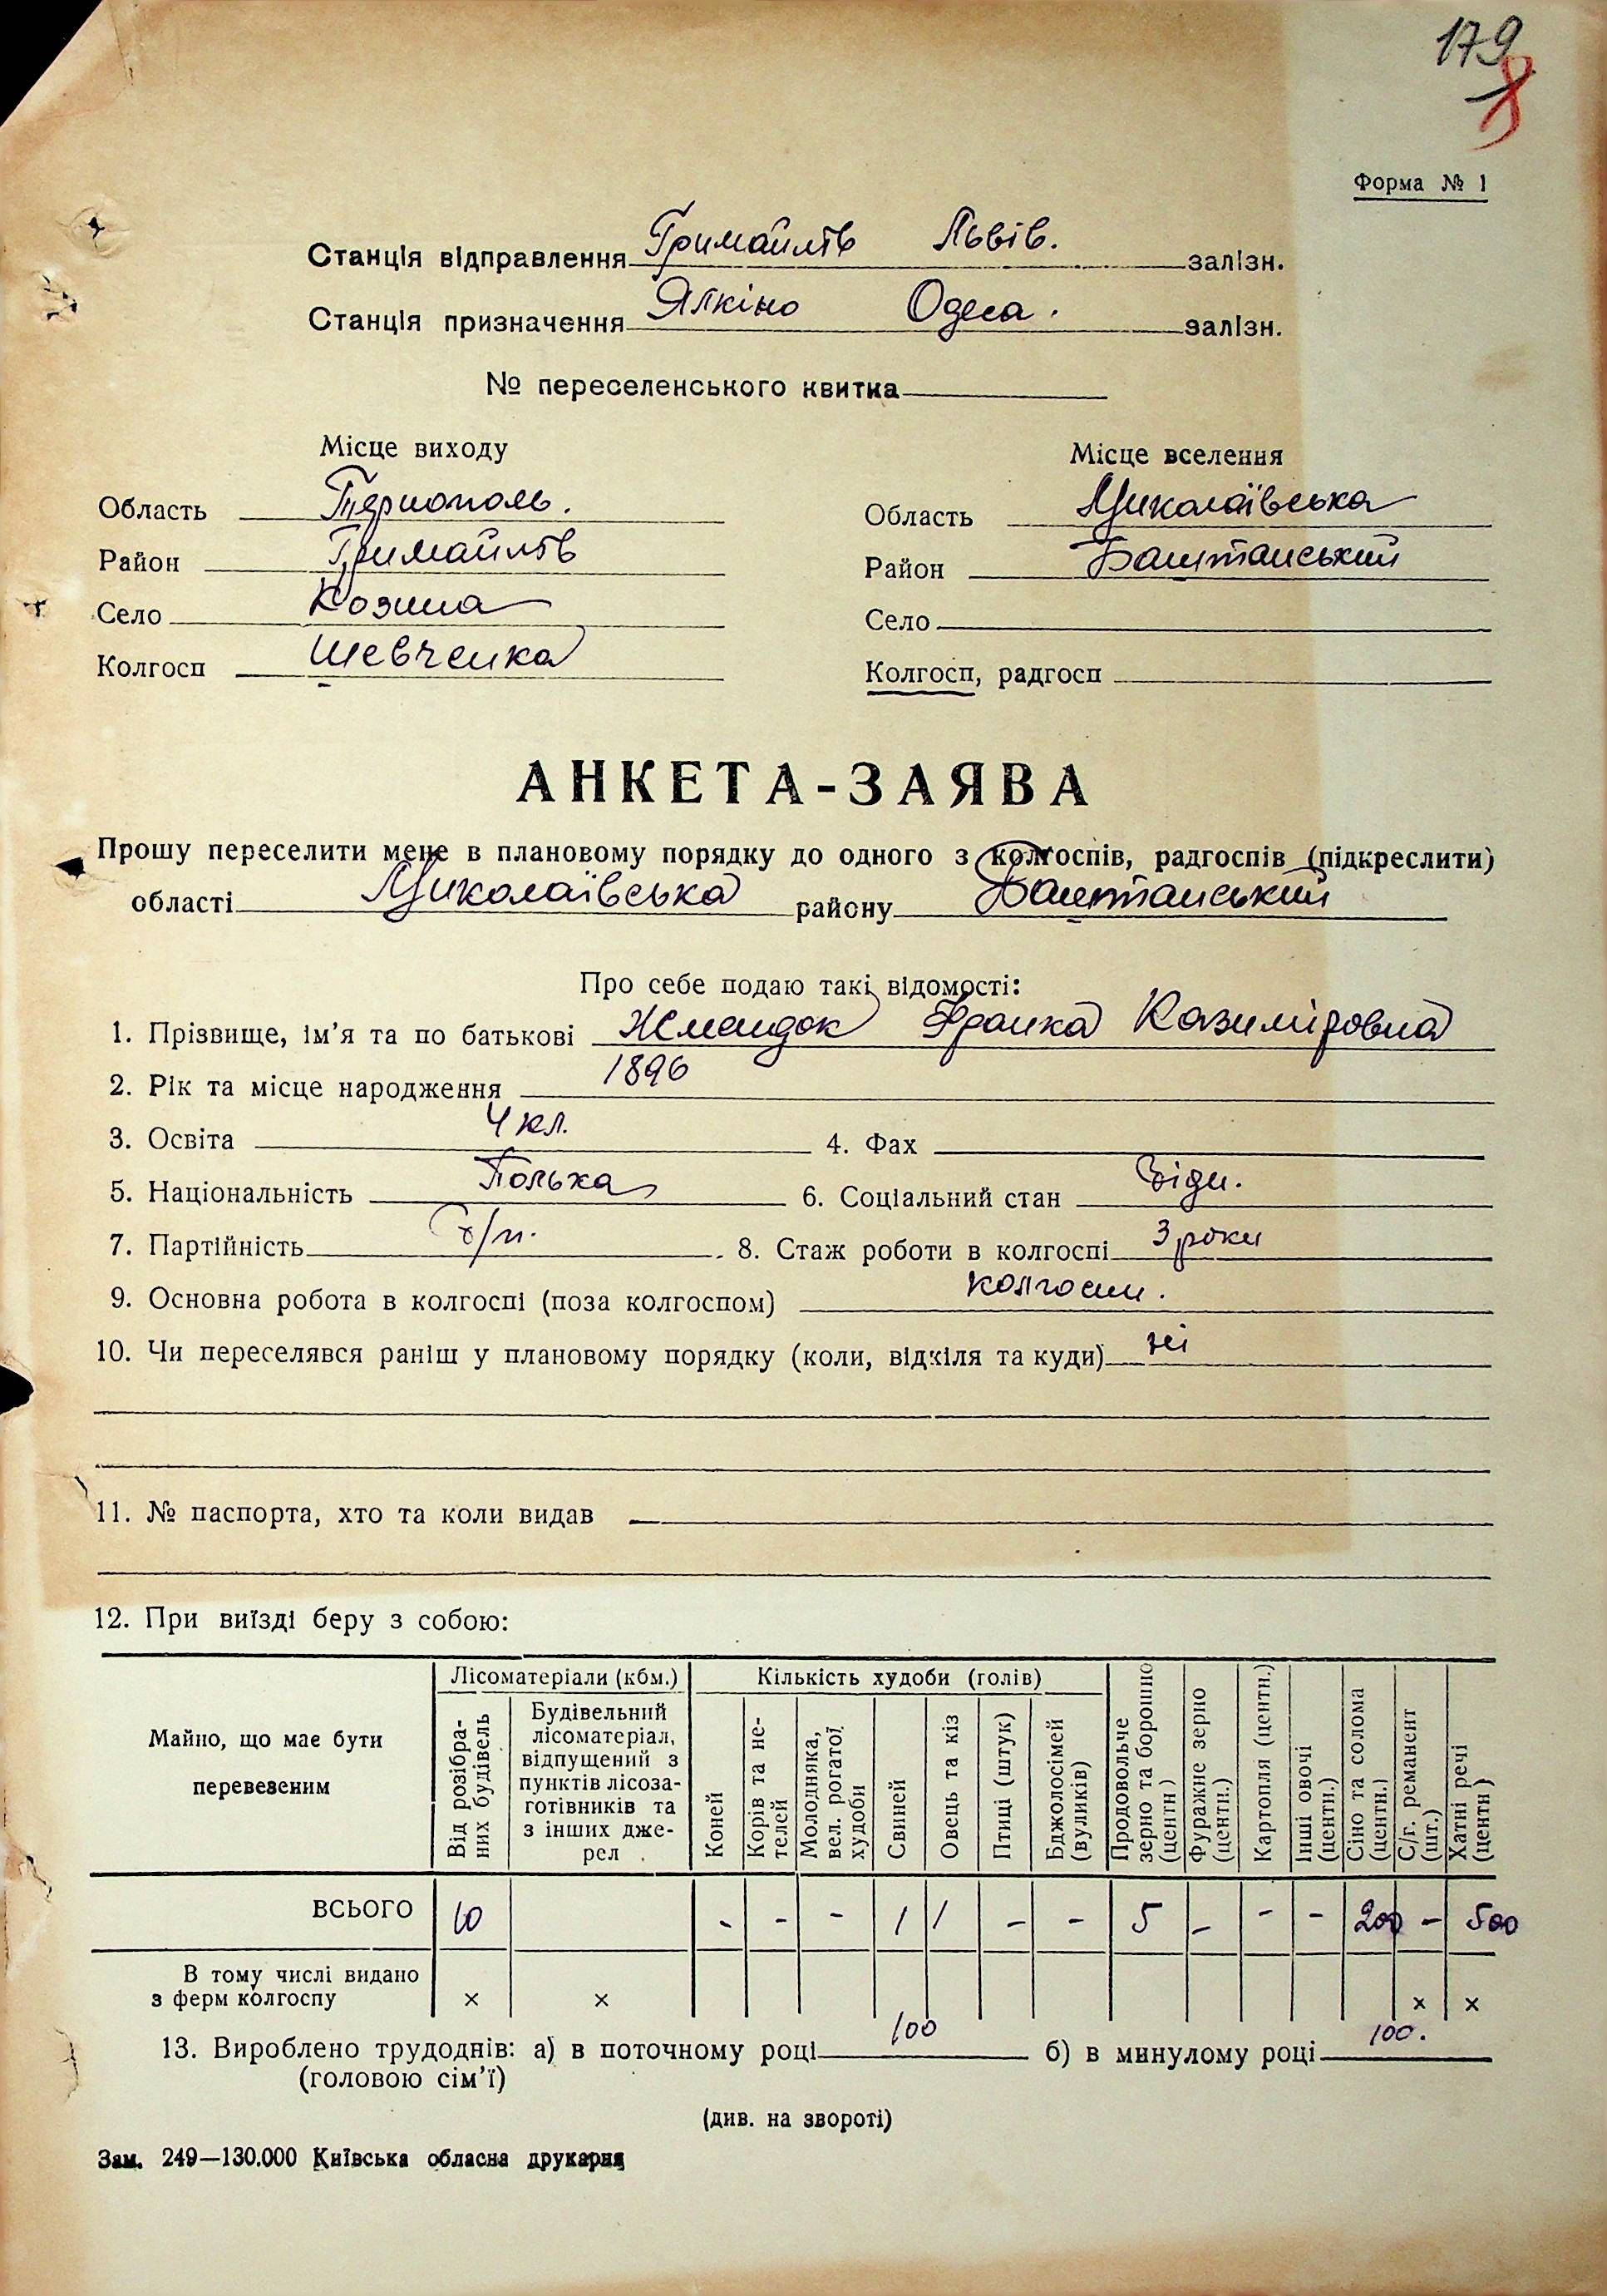 179
Форма № 1
Станція відправлення Гримайлів Львів. залізн.
Станція призначення Ялкіно Одеса. залізн.
№ переселенського квитка
Місце виходу
Місце вселення
Область Тернополь.
Область Миколаївська
Район Гримайлів
Район Баштанський
Село Козина
Село
Колгосп Шевченка
Колгосп, радгосп
АНКЕТА-ЗАЯВА
Прошу переселити мене в плановому порядку до одного з колгоспів, радгоспів (підкреслити)
області Миколаївська району Баштанський
Про себе подаю такі відомості:
1. Прізвище, ім'я та по батькові Жмендок Франка Казиміровна
2. Рік та місце народження 1896
3. Освіта 4 кл. 4. Фах
5. Національність Полька 6. Соціальний стан бідн.
7. Партійність б/п. 8. Стаж роботи в колгоспі 3 роки
9. Основна робота в колгоспі (поза колгоспом) колгосп.
10. Чи переселявся раніш у плановому порядку (коли, відкіля та куди) ні
11. № паспорта, хто та коли видав
12. При виїзді беру з собою:
Майно, що має бути перевезеним
Лісоматеріали (кбм.)
Кількість худоби (голів)
Від розібраних будівель
Будівельний лісоматеріал, відпущений з пунктів лісозаготівників та з інших джерел
Коней
Корів та нетелей
Молодняка, вел. рогатої худоби
Свиней
Овець та кіз
Птиці (штук)
Бджолосімей (вуликів)
Продовольче зерно та борошно (центн)
Фуражне зерно (центн.)
Картопля (центн.)
Інші овочі (центн.)
Сіно та солома (центн.)
С/г. реманент (шт.)
Хатні речі (центн)
ВСЬОГО 10 - - - 1 1 - - 5 - - - 200 - 500
В тому числі видано з ферм колгоспу × × × ×
13. Вироблено трудоднів: а) в поточному році 100 б) в минулому році 100.
(головою сім'ї)
(див. на звороті)
Зам. 249—130.000 Київська обласна друкарня